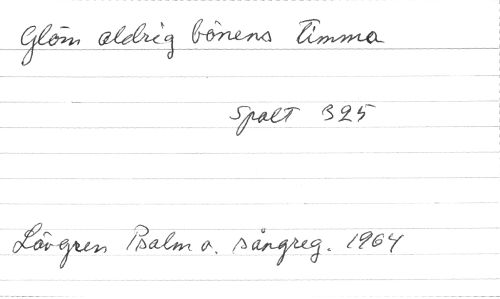 Glöm aldrig bönens timma
Spalt 325
Lövgren Psalm o. sångreg. 1964